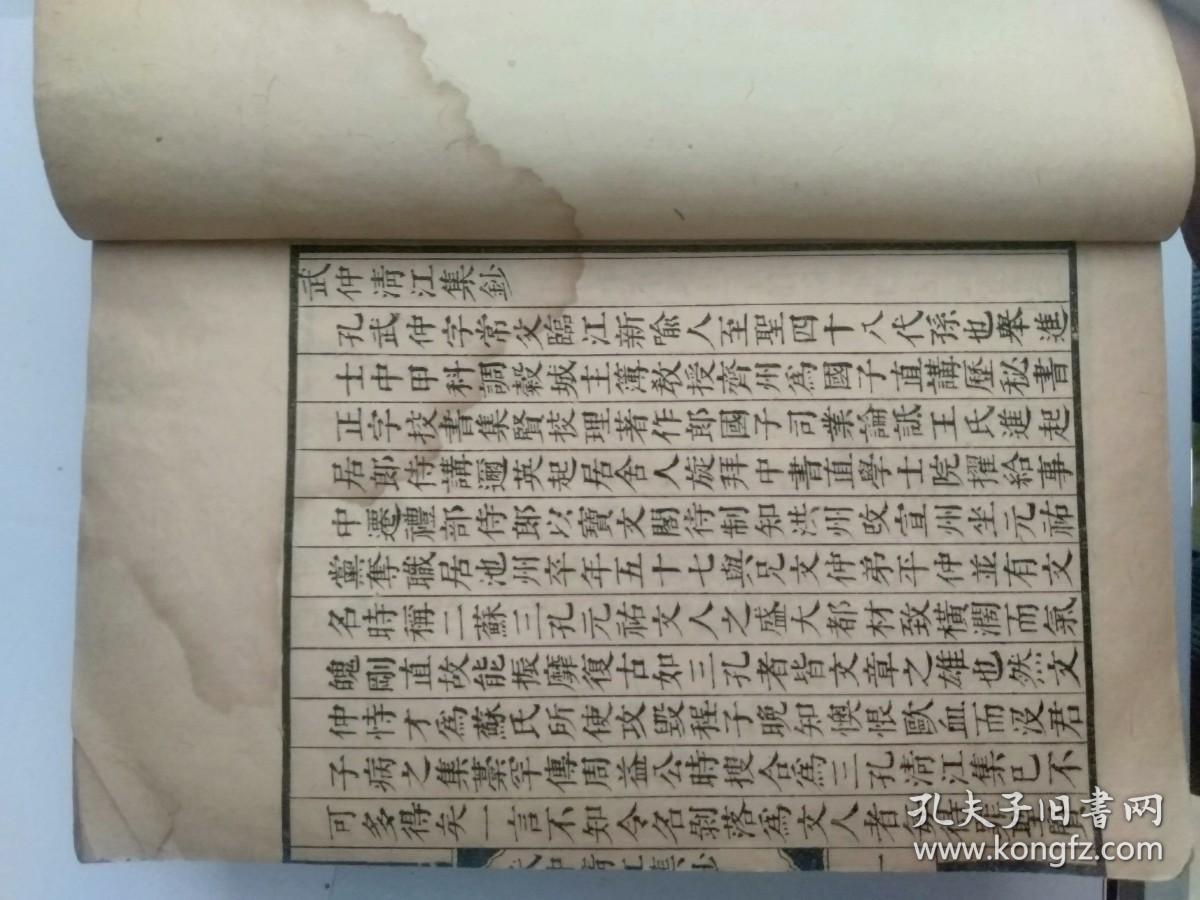 武仲清江集鈔
孔武仲字常父臨江新喻人至聖四十八代孫也舉進
士中甲科調穀城主簿敎授齊州為國子直講歷秘書
正字挍書集賢挍理著作郎國子司業論詆王氏進起
居郎侍講邇英起居舍人旋拜中書直學士院擢給事
中遷禮部侍郎以寶文閣待制知洪州改宣州坐元祐
黨奪職居池州卒年五十七與兄文仲弟平仲並有文
名時稱二蘇三孔元祐文人之盛大都材致橫濶而氣
魄剛直故能振靡復古如三孔者皆文章之雄也然文
仲恃才為蘇氏所使攻毀程子晚知懊恨歐血而没君
子病之集藁罕傳周益公時搜合為三孔淸江集已不
可多得矣一言不知令名剝落為文人者
武仲清江集鈔
一
孔夫子旧书网
www.kongfz.com